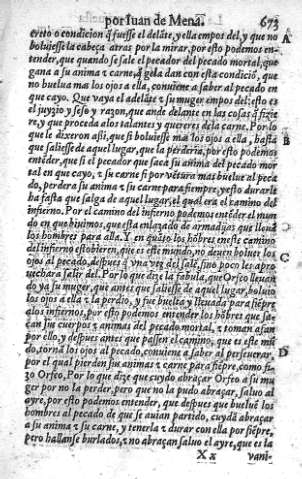 por Iuan de Mena.
673
evito o condicion q̃ fuesse el delãte, y ella empos del, y que no
A
boluiesse la cabeça atras por la mirar, por esto podemos en-
tender, que quando se sale el pecador del pecado mortal, que
gana a su anima ⁊ carne, q̃ gela dan con esta condiciõ, que
no buelua mas los ojos a ella, conuiene a saber al pecado en
que cayo. Que vaya el adelãte ⁊ su muger empos del: esto es
el juyzio y seso y razon, que ande delante en las cosas q̃ fizie
re, y que proceda alos talantes y quereres dela carne. Por lo
que le dixeron assi, que si boluiesse los ojos a ella, hasta
B
que saliesse de aquel lugar, que la perderia, por esto podemos
entẽder, que si el pecador que saca su anima del pecado mor
tal en que cayo, ⁊ su carne si por vẽtura mas buelue al peca
do, perdera su anima ⁊ su carne para siempre, y esto durarle
ha fasta que salga de aquel lugar, el qual era el camino del
infierno. Por el camino del infierno podemos entẽder el mun
do en que biuimos, que esta enlazado de armadijas que lleuã
los hombres para alla. Y en quãto los hõbres en este camino
del infierno estobieren, que es este mundo, no deuen boluer los
C
ojos al pecado, despues q̃ vna vez del salẽ, sino poco les apro
uechara salir del. Por lo que dize la fabula, que Orfeo lleuan
do ya su muger, que antes que saliesse de aquel lugar, boluio
los ojos a ella ⁊ la perdio, y fue buelta y lleuada para siẽpre
alos infiernos, por esto podemos entender los hõbres que sa-
can sus cuerpos ⁊ animas del pecado mortal, ⁊ toman afan
por ello, y despues antes que passen el camino, que es este mũ
do, tornã los ojos al pecado, conuiene a saber al perseuerar,
D
por el qual pierden sus animas ⁊ carne para siẽpre, como fi-
zo Orfeo. Por lo que dize que cuydo abraçar Orfeo a su mu
ger por no la perder, pero que no la pudo abraçar, saluo al
ayre, por esto podemos entender, que despues que buelue los
hombres al pecado de que se auian partido, cuydã abraçar
a su anima ⁊ su carne, y tenerla ⁊ durar con ella por siẽpre,
pero hallanse burlados, ⁊ no abraçan saluo el ayre, que es la
Xx
vani-